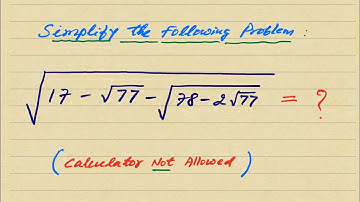 Simplify the Following Problem :
√(17 - √77 - √(78 - 2√77)) = ?
(Calculator Not Allowed)